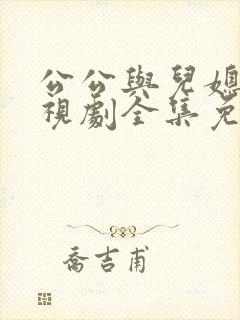 公公與兒媳
視劇全集免
喬吉甫